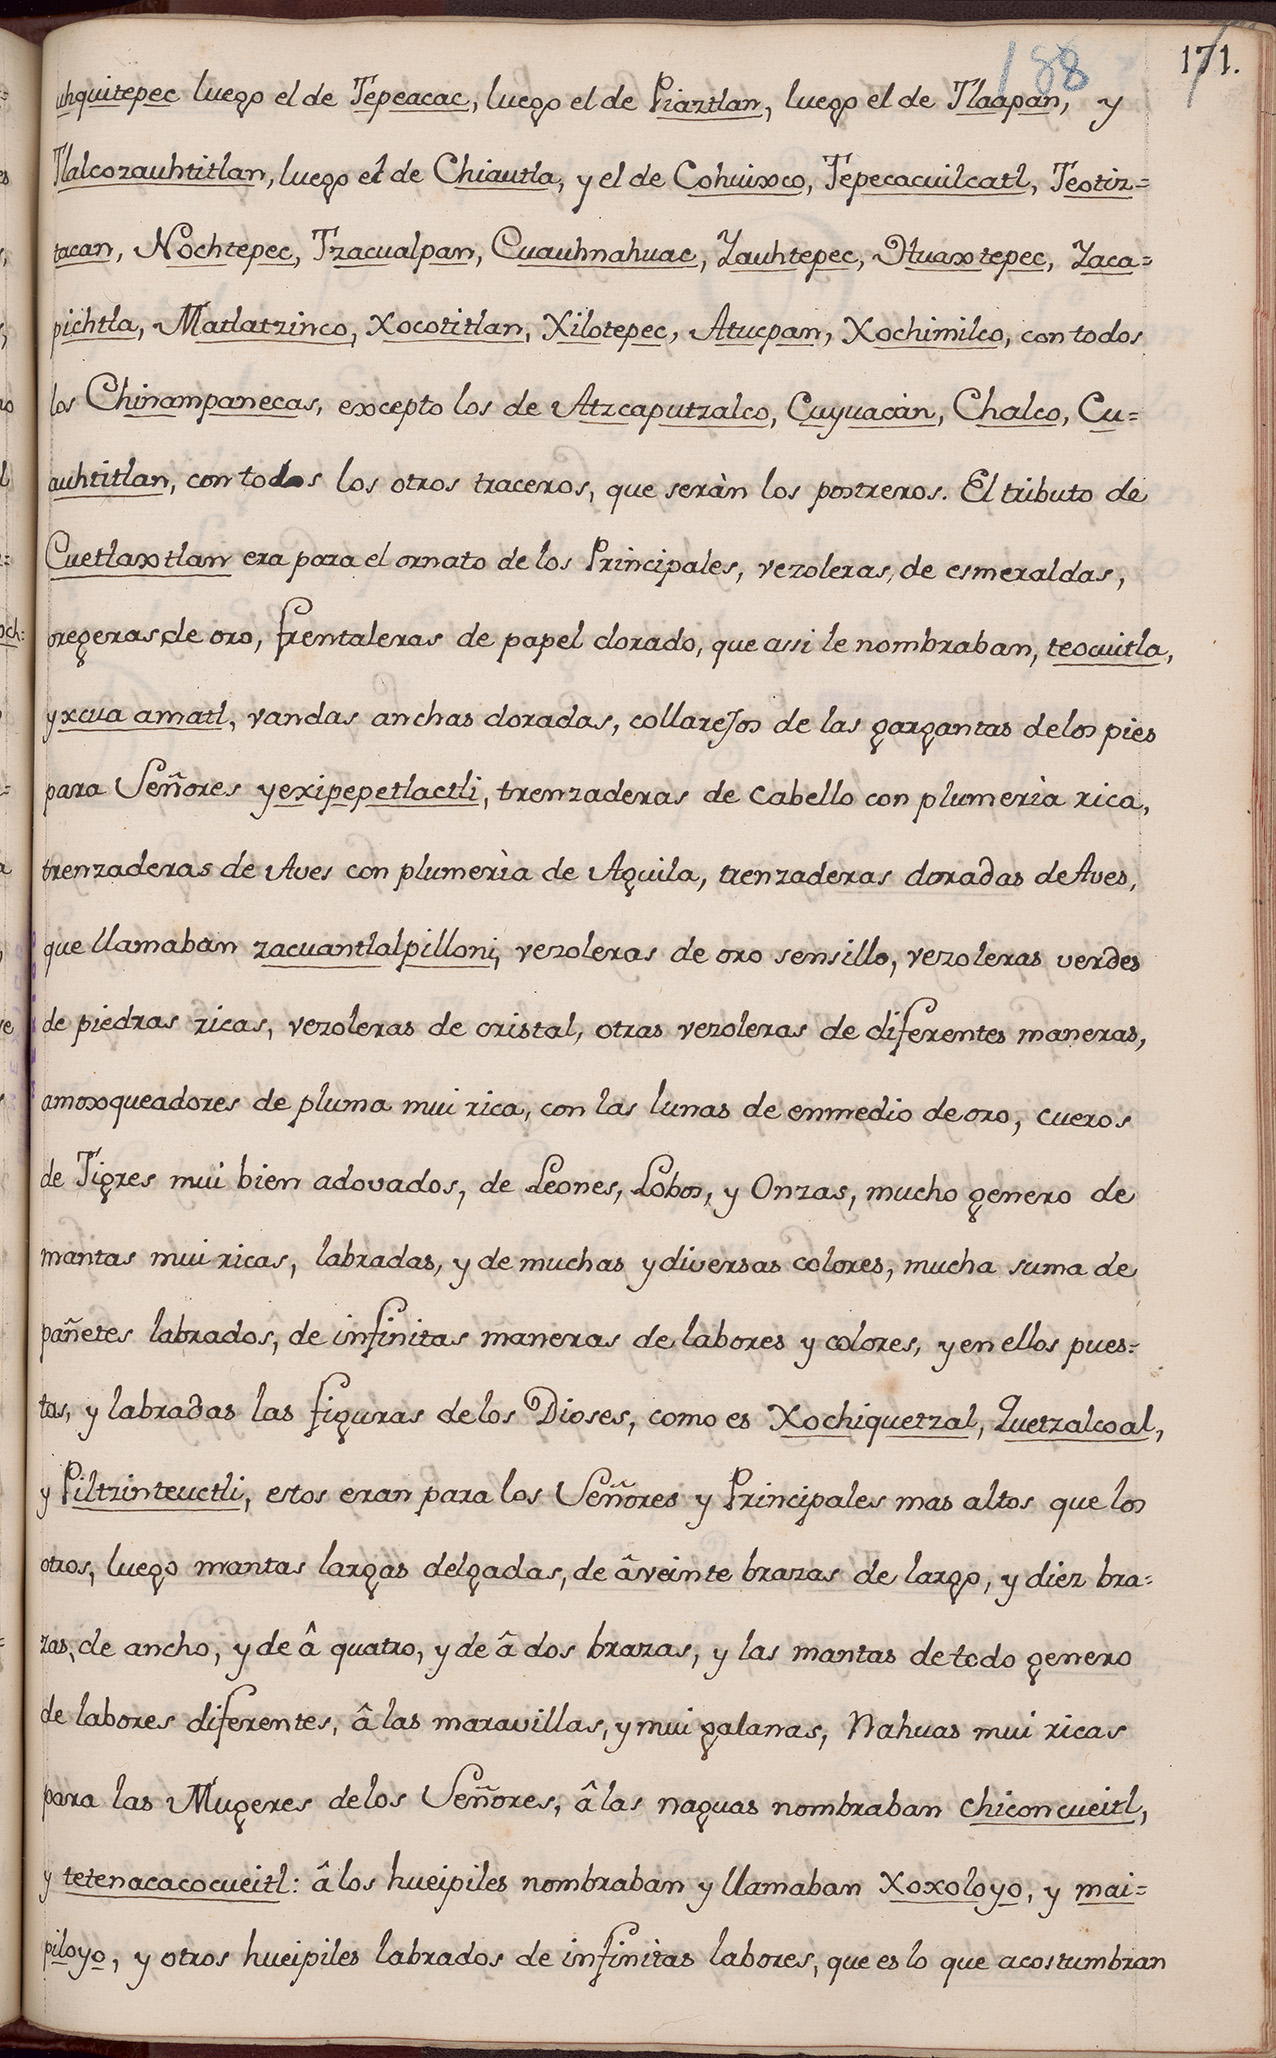 188 171.
uhquitepec luego el de Tepeacac, luego el de Piaztlan, luego el de Tlaapan, y
Tlalcozauhtitlan, luego el de Chiautla, y el de Cohuixco, Tepecacuilcatl, Teotiz=
tacan, Nochtepec, Tzacualpan, Cuauhnahuac, Yauhtepec, Huaxtepec, Yaca=
pichtla, Matlatzinco, Xocotitlan, Xilotepec, Atucpan, Xochimilco, con todos
los Chinampanecas, excepto los de Atzcaputzalco, Cuyuacàn, Chalco, Cu=
auhtitlan, con todos los otros traceros, que seràn los postreros. El tributo de
Cuetlaxtlan era para el ornato de los Principales, vezoleras, de esmeraldas,
oregeras, de oro, frentaleras de papel dorado, que assi le nombraban, teocuitla,
yxcua amatl, vandas anchas doradas, collarejos de las gargantas de los pies
para Señores yexipepetlactli, trenzaderas de Cabello con plumerìa rica,
trenzaderas de Aves con plumerìa de Aguila, trenzaderas doradas de Aves,
que llamaban zacuantlalpilloni, vezoleras de oro sensillo, vezoleras verdes
de piedras ricas, vezoleras de cristal, otras vezoleras de diferentes maneras,
amoxqueadores de pluma mui rica, con las lunas de enmedio de oro, cueros
de Tigres mui bien adovados, de Leones, Lobos, y Onzas, mucho genero de
mantas mui ricas, labradas, y de muchas y diversas colores, mucha suma de
pañetes labrados, de infinitas maneras de labores y colores, y en ellos pues=
tas, y labradas las figuras de los Dioses, como es Xochiquetzal, Quetzalcoal,
y Piltzinteuctli, estos eran para los Señores y Principales mas altos que los
otros, luego mantas largas delgadas, de â veinte brazas de largo, y diez bra=
zas, de ancho, y de â quatro, y de â dos brazas, y las mantas de todo genero
de labores diferentes, â las maravillas, y mui galanas, Nahuas mui ricas
para las Mugeres de los Señores, â las naguas nombraban chiconcueitl,
y tetenacacocueitl: â los hueipiles nombraban y llamaban Xoxoloyo, y mai=
piloyo, y otros hueipiles labrados de infinitas labores, que es lo que acostumbran